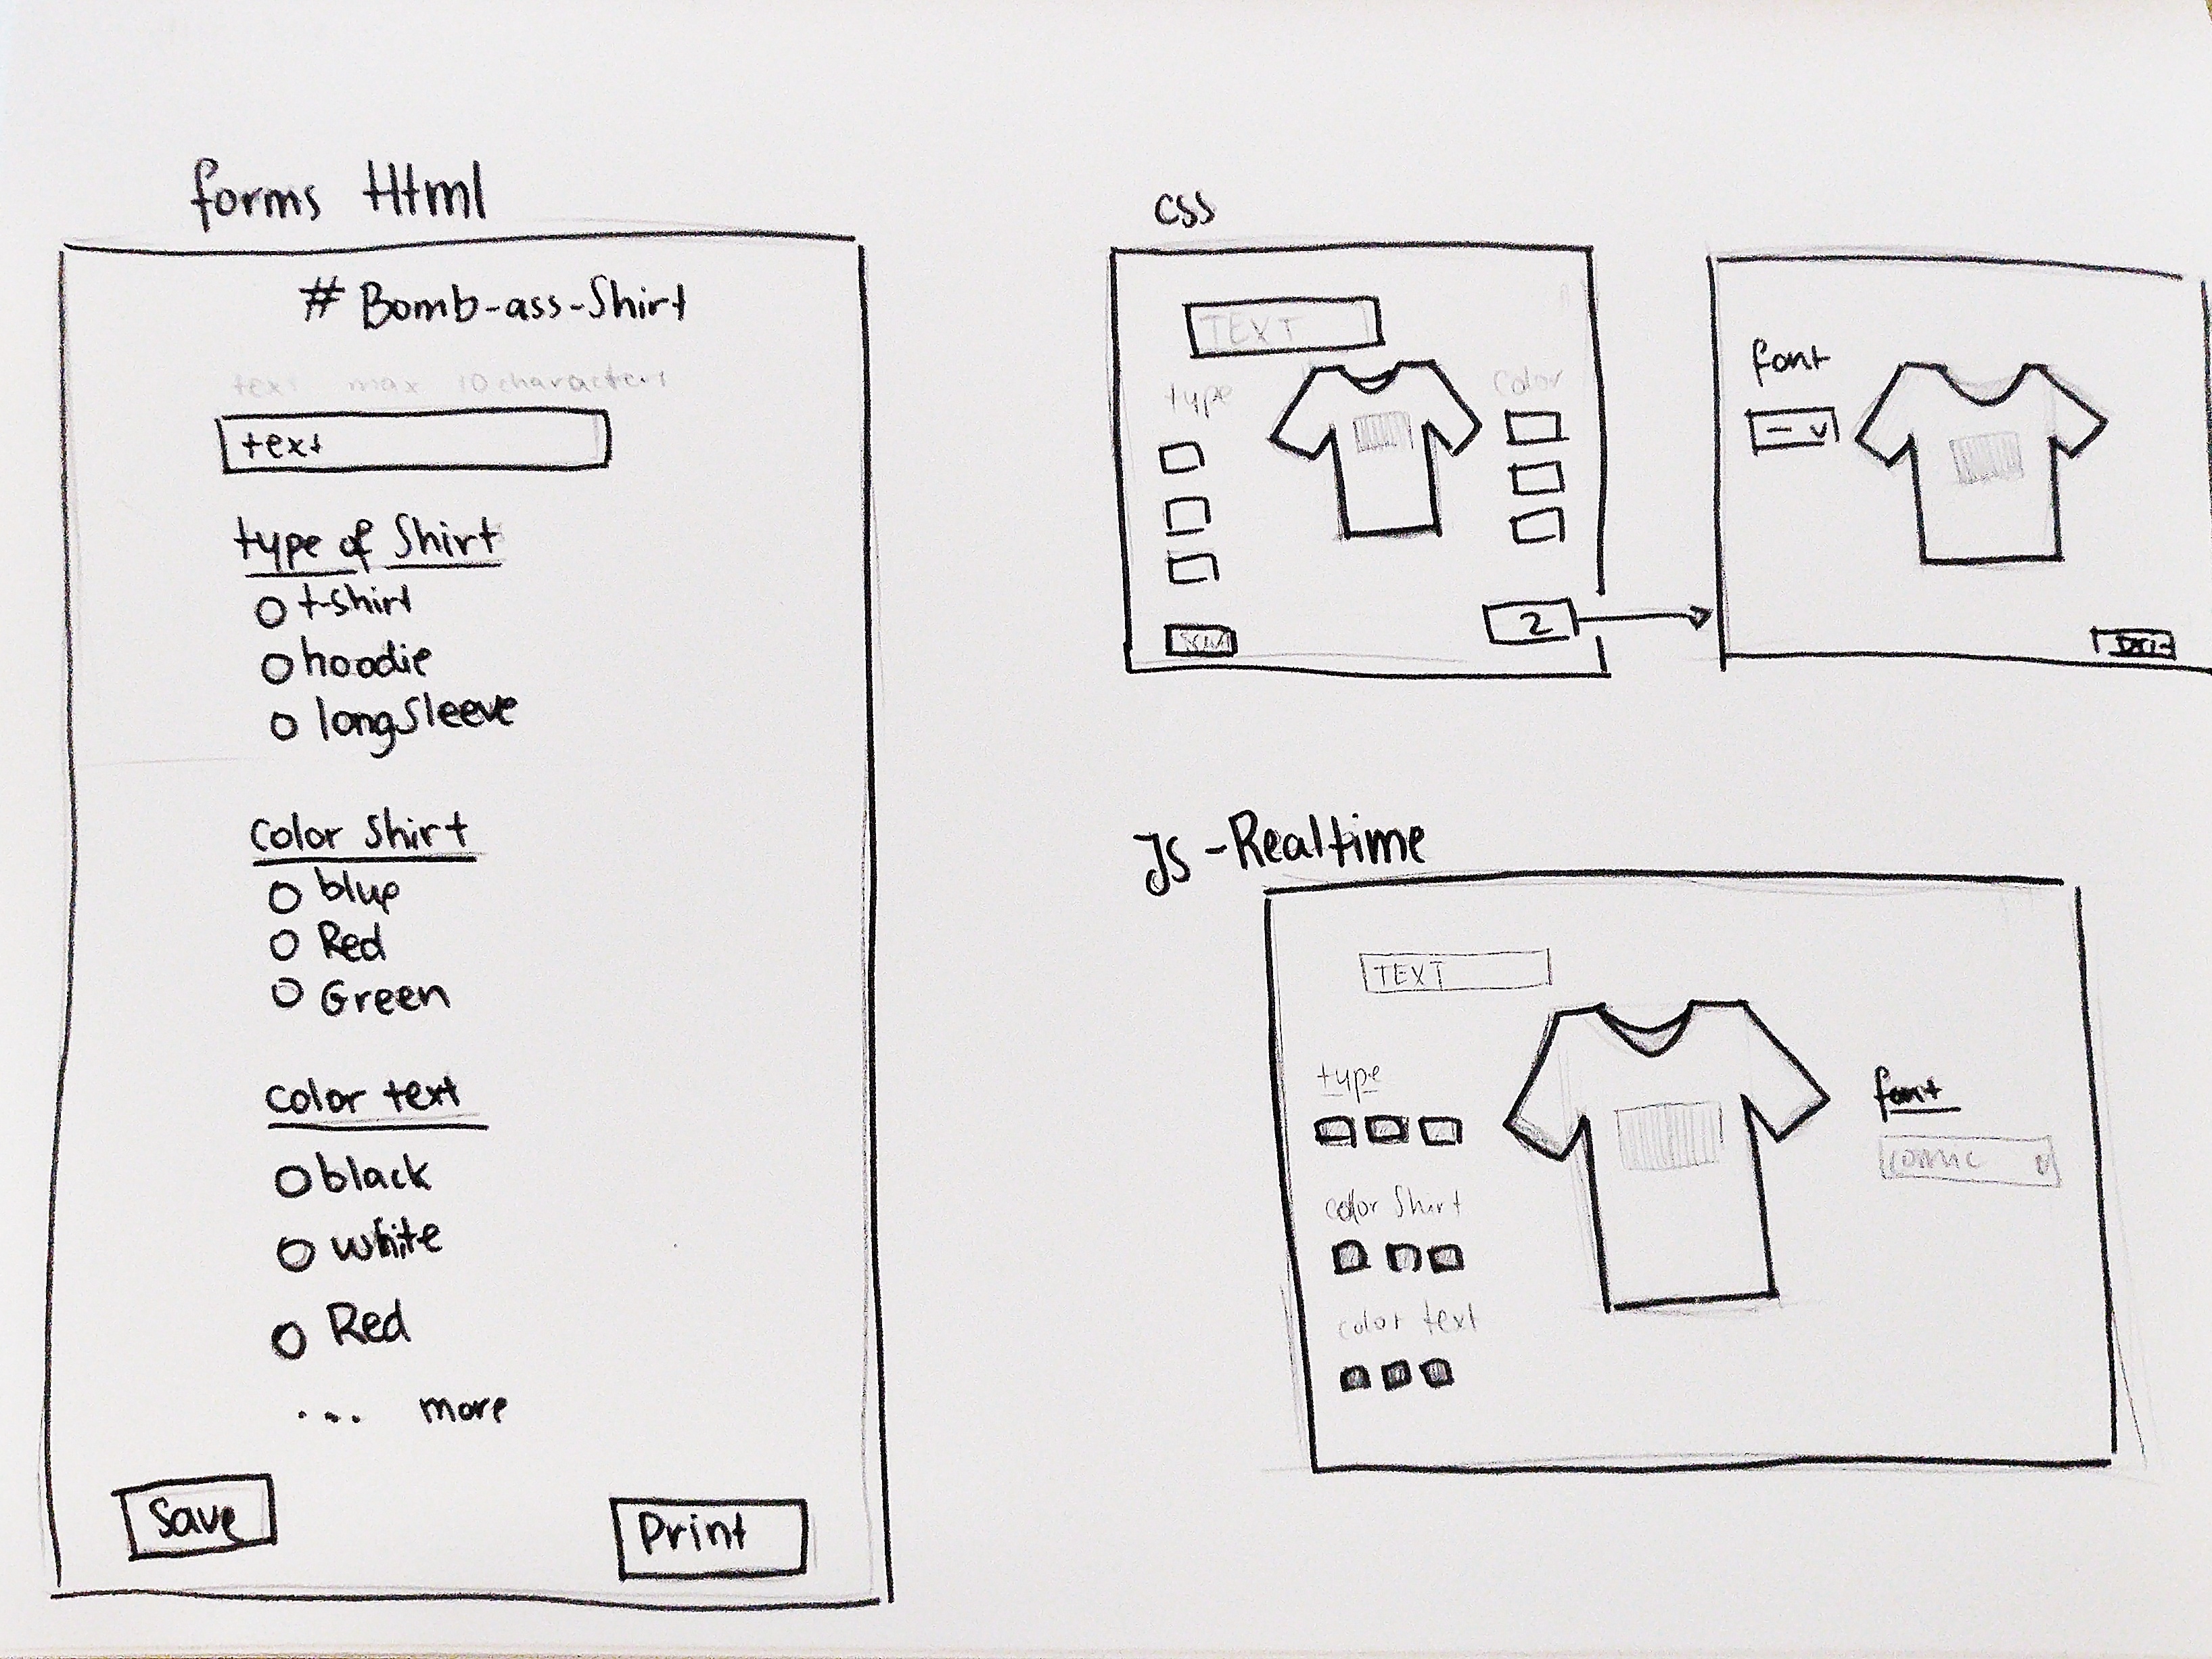 forms Html
# Bomb-ass-Shirt
text max 10 characters
text
type of Shirt
t-shirt
hoodie
longsleeve
Color Shirt
blue
Red
Green
Color text
black
white
Red
... more
Save
Print
css
TEXT
type
Color
Save
2
font
JS - Realtime
TEXT
type
color Shirt
color text
font
comic